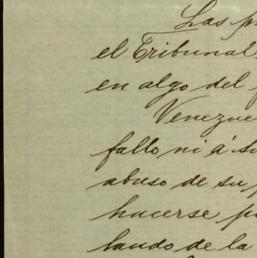 Las p
el Tribunal
en algo del
Venezue
fallo ni á su
abuso de su
hacerse p
laudo de la